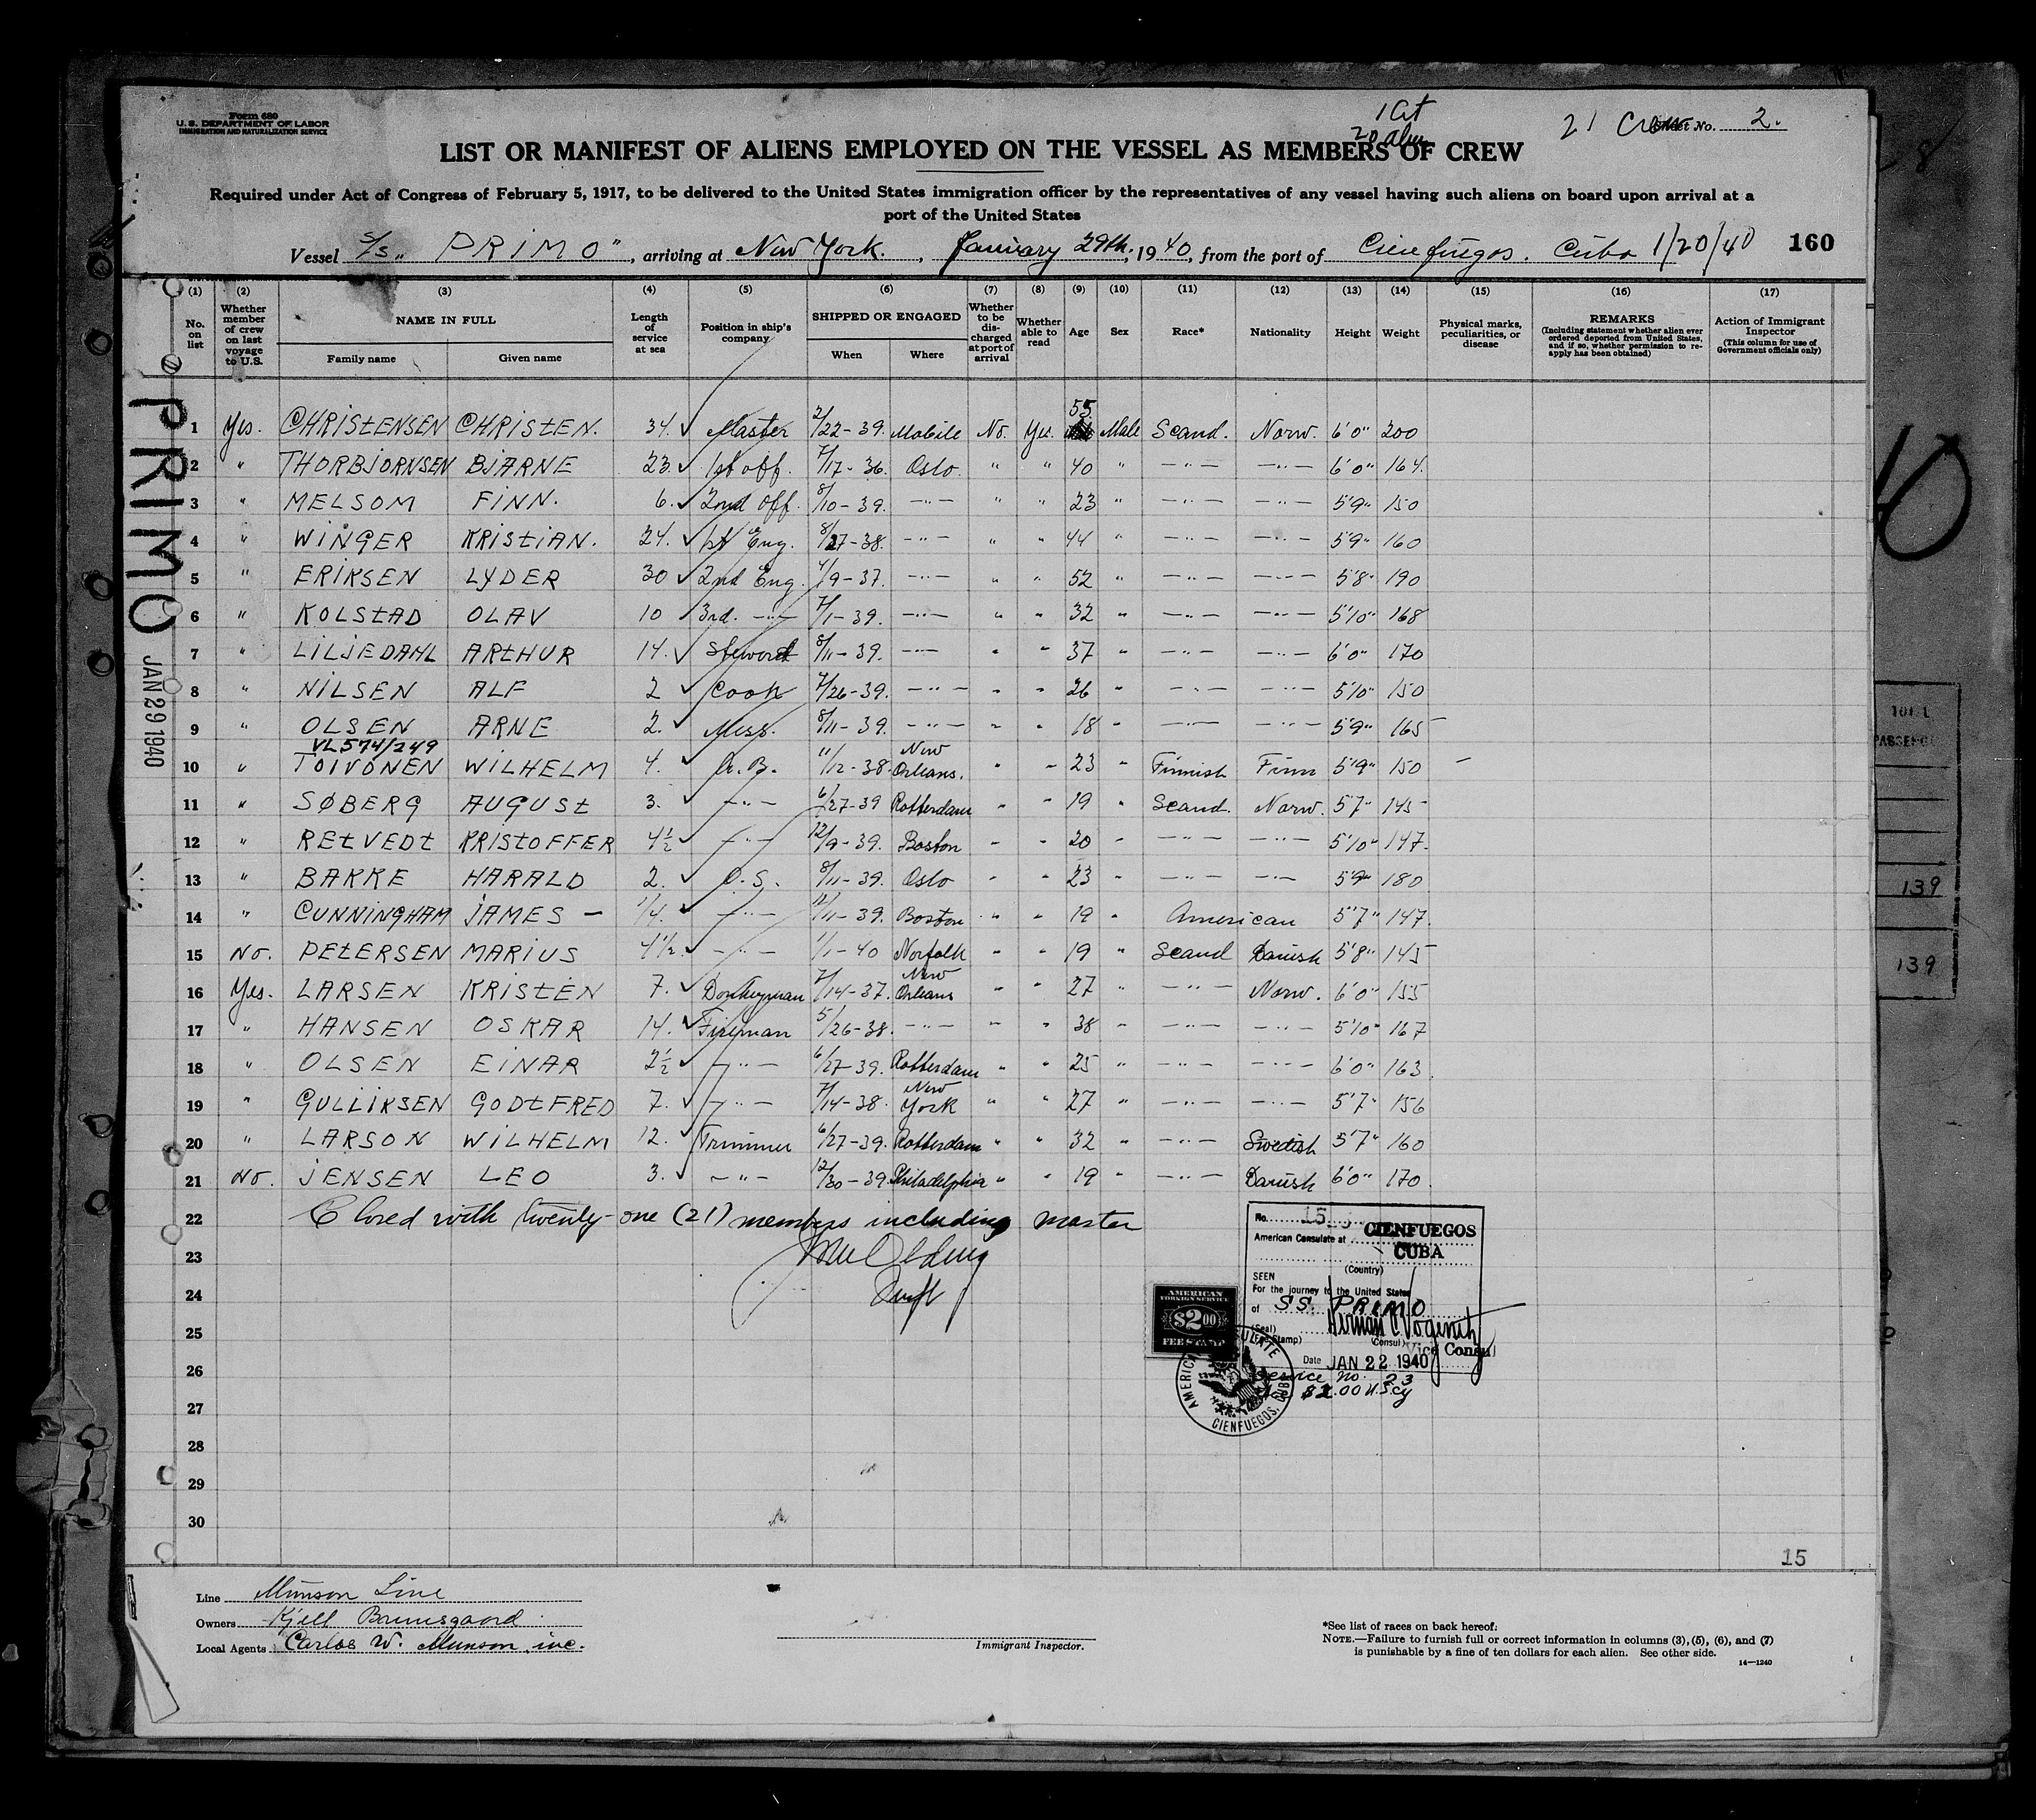 Form 680
U. S. DEPARTMENT OF LABOR
IMMIGRATION AND NATURALIZATION SERVICE
1 Cit
20 alien
21 Crew Sheet No. 2.
LIST OR MANIFEST OF ALIENS EMPLOYED ON THE VESSEL AS MEMBERS OF CREW
Required under Act of Congress of February 5, 1917, to be delivered to the United States immigration officer by the representatives of any vessel having such aliens on board upon arrival at a
port of the United States
Vessel S/S „ PRIMO ", arriving at New York. , January 29th, 1940, from the port of Cienfuegos. Cuba 1/20/40 160
(1) (2) (3) (4) (5) (6) (7) (8) (9) (10) (11) (12) (13) (14) (15) (16) (17)
No. on list
Whether member of crew on last voyage to U.S.
NAME IN FULL
Family name Given name
Length of service at sea
Position in ship's company
SHIPPED OR ENGAGED
When Where
Whether to be discharged at port of arrival
Whether able to read
Age Sex Race* Nationality Height Weight
Physical marks, peculiarities, or disease
REMARKS
(Including statement whether alien ever ordered deported from United States, and if so, whether permission to reapply has been obtained)
Action of Immigrant Inspector
(This column for use of Government officials only)
1 Yes. CHRISTENSEN CHRISTEN. 34. Master 2/22-39. Mobile No. Yes. 55. Male Scand. Norw. 6'0" 200
2 " THORBJORNSEN BJARNE 23. 1st off. 7/17-36. Oslo. " " 40 " —"— —"— 6'0" 164.
3 " MELSOM FINN. 6. 2nd off. 8/10-39. —"— " " 23 " —"— —"— 5'9" 150
4 " WINGER KRISTIAN. 24. 1st Eng. 8/27-38. —"— " " 44 " —"— —"— 5'9" 160
5 " ERIKSEN LYDER 30 2nd Eng. 4/9-37. —"— " " 52 " —"— —"— 5'8" 190
6 " KOLSTAD OLAV 10 3rd. —"— 7/1-39. —"— " " 32 " —"— —"— 5'10" 168
7 " LILJEDAHL ARTHUR 14. Steward 8/11-39. —"— " " 37 " —"— —"— 6'0" 170
8 " NILSEN ALF 2 Cook 7/26-39. —"— " " 26 " —"— —"— 5'10" 150
9 " OLSEN ARNE 2. Mess. 8/11-39. —"— " " 18 " —"— —"— 5'9" 165
VL574/249
10 " TOIVONEN WILHELM 4. A.B. 11/12-38. New Orleans. " " 23 " Finnish Finn 5'9" 150
11 " SØBERG AUGUST 3. —"— 6/27-39 Rotterdam " " 19 " Scand. Norw. 5'7" 145
12 " RETVEDT KRISTOFFER 4½ —"— 12/9-39. Boston " " 20 " —"— —"— 5'10" 147.
13 " BAKKE HARALD 2. O.S. 8/11-39. Oslo " " 23 " —"— —"— 5'9" 180
14 " CUNNINGHAM JAMES – 1/4. —"— 12/11-39. Boston " " 19 " American 5'7" 147.
15 No. PETERSEN MARIUS 4½. —"— 1/1-40 Norfolk " " 19 " Scand Danish 5'8" 145
16 Yes. LARSEN KRISTEN 7. Donkeyman 7/14-37. New Orleans " " 27 " —"— Norw. 6'0" 155
17 " HANSEN OSKAR 14. Fireman 5/26-38. —"— " " 38 " —"— —"— 5'10" 167
18 " OLSEN EINAR 2½ —"— 6/27-39. Rotterdam " " 25 " —"— —"— 6'0" 163.
19 " GULLIKSEN GODTFRED 7. —"— 7/14-38. New York " " 27 " —"— —"— 5'7" 156
20 " LARSON WILHELM 12. Trimmer 6/27-39. Rotterdam " " 32 " —"— Swedish 5'7" 160
21 No. JENSEN LEO 3. —"— 12/30-39. Philadelphia " " 19 " —"— Danish 6'0" 170.
22 Closed with twenty-one (21) members including master
23
24
25
26
27
28
29
30
PRIMO
JAN 29 1940
No. 15
American Consulate at CIENFUEGOS
CUBA
(Country)
SEEN
For the journey to the United States
of SS. PRIMO
(Seal)
(Fee Stamp)
(Consul) Vice Consul
Date JAN 22 1940
Service No. 23
$2.00 U.S.cy
AMERICAN
FOREIGN SERVICE
$2.00
FEE STAMP
AMERICAN CONSULATE
CIENFUEGOS, CUBA
15
Line Munson Line
Owners Kjell
Local Agents Carlos W. Munson, inc.
Immigrant Inspector.
*See list of races on back hereof.
NOTE.—Failure to furnish full or correct information in columns (3), (5), (6), and (7)
is punishable by a fine of ten dollars for each alien. See other side.
14—1240
139
139